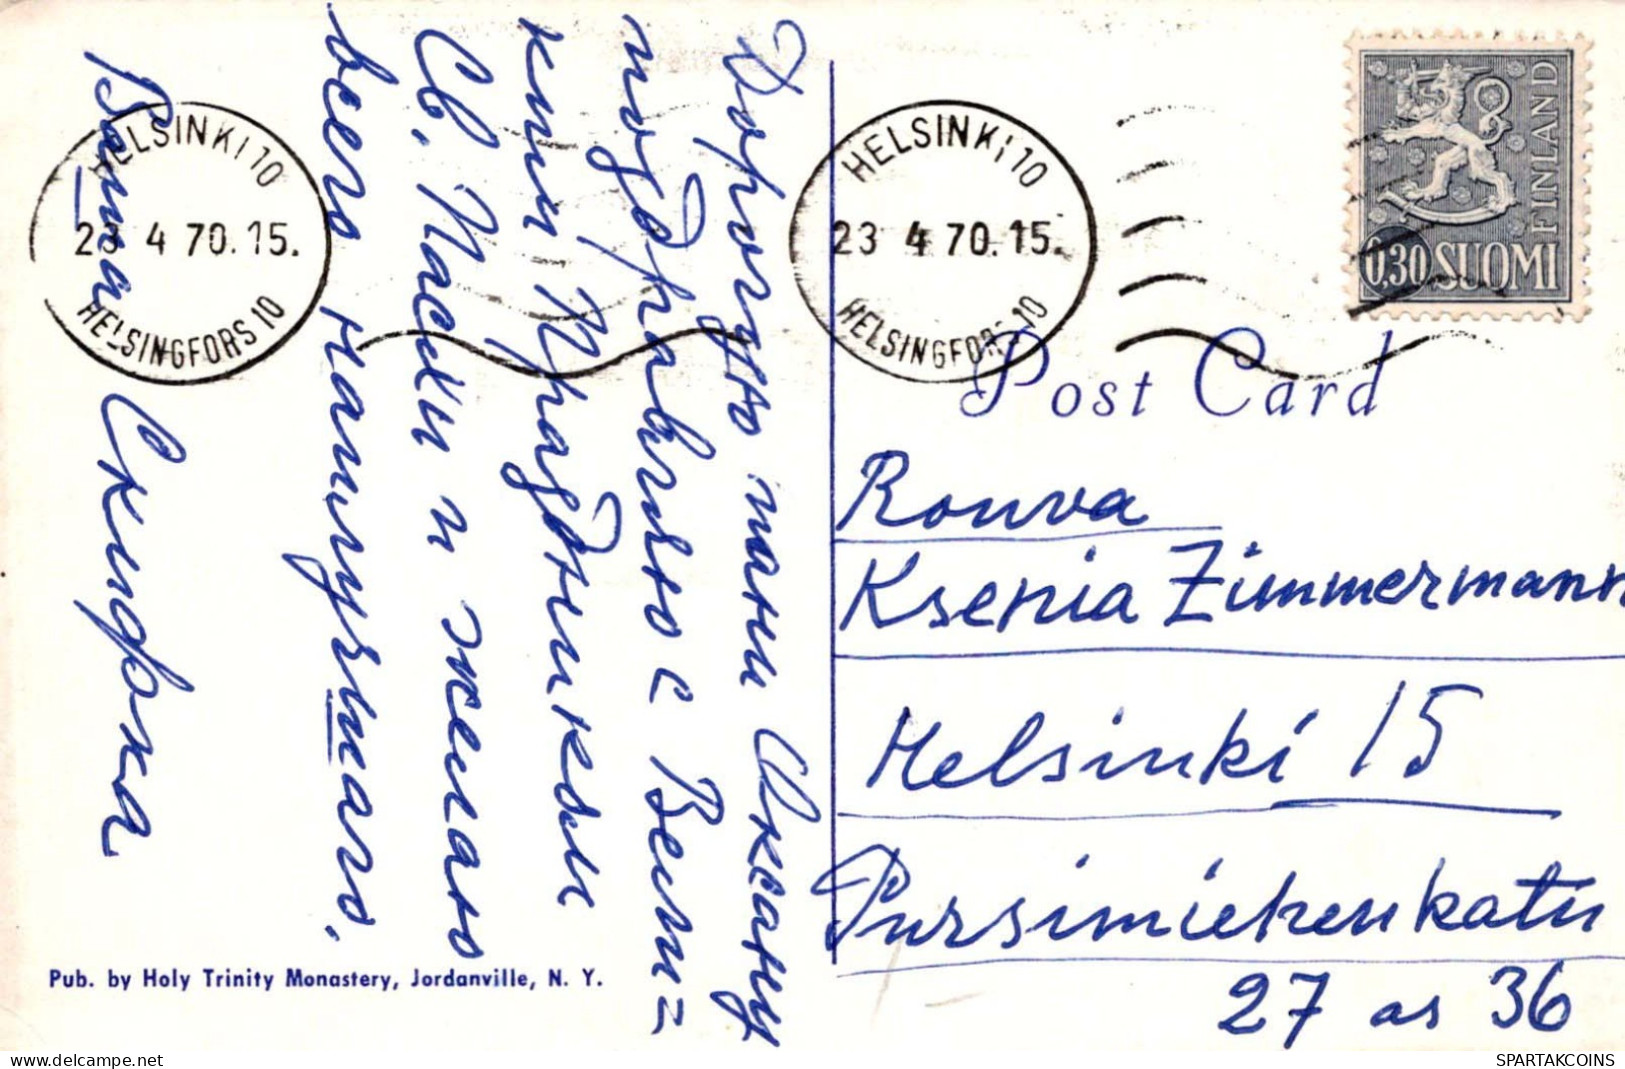 Дорогую милую Оксану
поздравляю с Вели=
ким Праздником
Св. Пасхи и желаю
всего наилучшаго.
Ваша
HELSINKI 10
23 4 70.15.
HELSINGFORS 10
HELSINKI 10
23 4 70.15.
HELSINGFORS 10
FINLAND
0,30 SUOMI
Post Card
Rouva
Ksenia Zimmermann
Helsinki 15
Pursimiehenkatu
27 as 36
Pub. by Holy Trinity Monastery, Jordanville, N. Y.
SPARTAKCOINS
delcampe.net